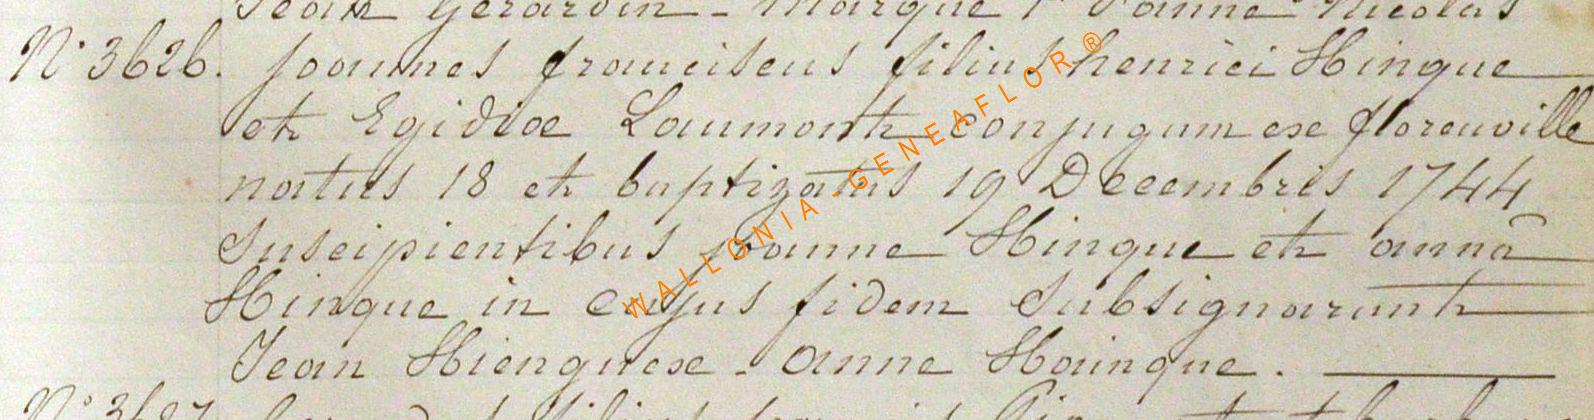 Jean Gerardin - marque + d'anne Nicolas
N° 3626. joannes franciscus filius henrici Hinque
et Egidiæ Laumont conjugum ex florenville
natus 18 et baptizatus 19 Decembris 1744
Suscipientibus joanne Hinque et annâ
Hinque in cujus fidem Subsignarunt
Jean Hienguex - anne Hainque.
N° 3627
WALLONIA - GENEAFLOR®